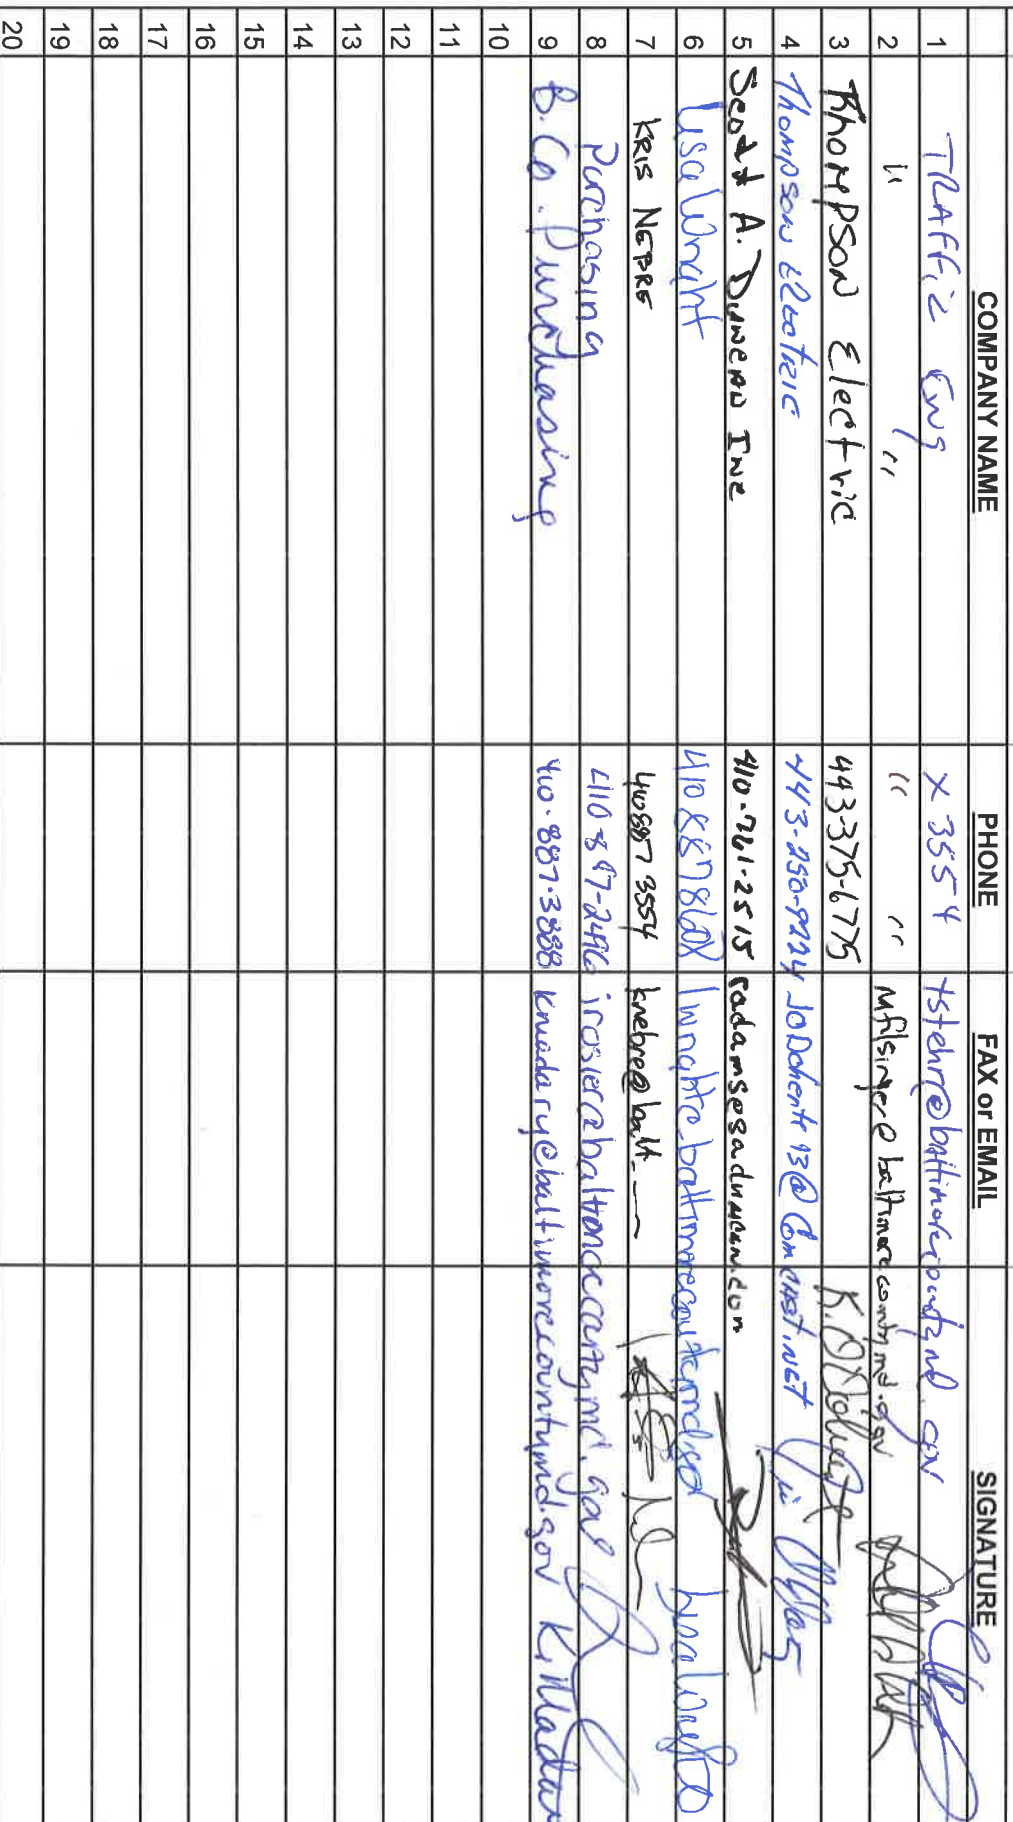 COMPANY NAME PHONE FAX or EMAIL SIGNATURE
1 TRAFFIC Eng x 3554 tstehr@baltimorecountymd.gov
2 " " " " mfilsinger@baltimorecountymd.gov
3 Thompson Electric 443-375-6775
4 Thompson Electric 443-250-9224 JODohent93@Comcast.net
5 Scott A. Duncan Inc 410-761-2515 radams@saduncan.com
6 Lisa Wright 410 887 8608 lwright@baltimorecountymd.gov Lisa Wright
7 KRIS NEBRE 410887 3554 knebre@balt.
8 Purchasing 410 887-2496 irosier@baltimorecountymd.gov
9 B. Co. Purchasing 410-887-3888 kmadary@baltimorecountymd.gov K. Madary
10
11
12
13
14
15
16
17
18
19
20